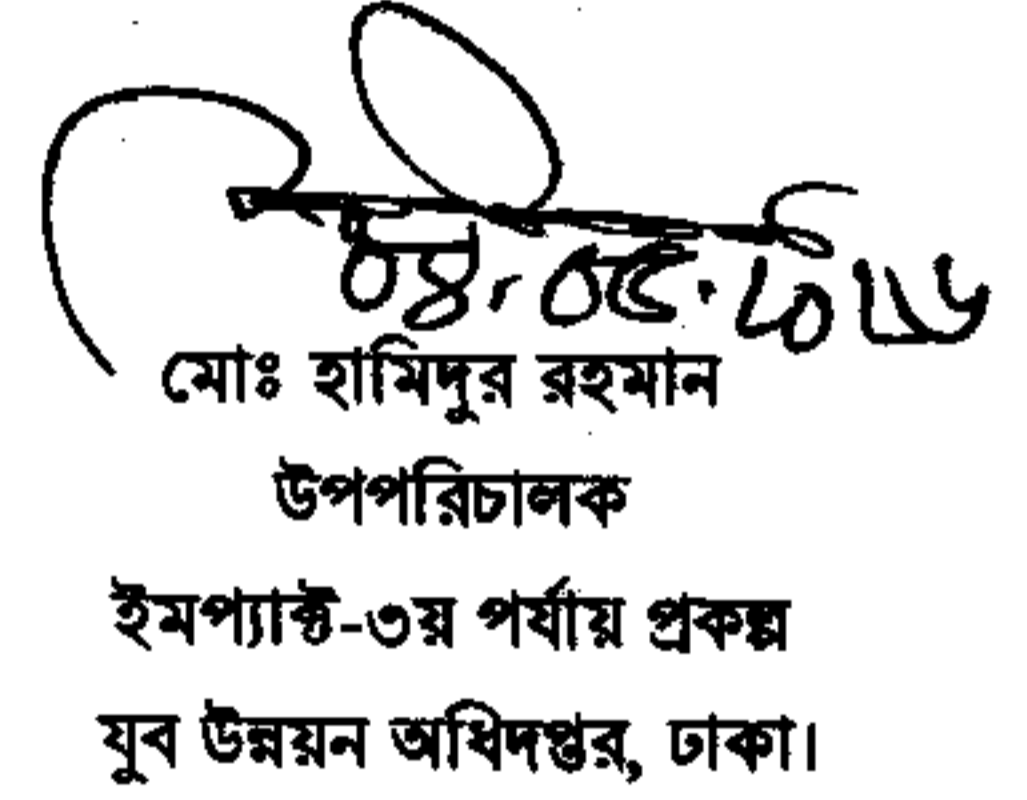 ০৪.০৫.২০২৬
মোঃ হামিদুর রহমান
উপপরিচালক
ইমপ্যাক্ট-৩য় পর্যায় প্রকল্প
যুব উন্নয়ন অধিদপ্তর, ঢাকা।